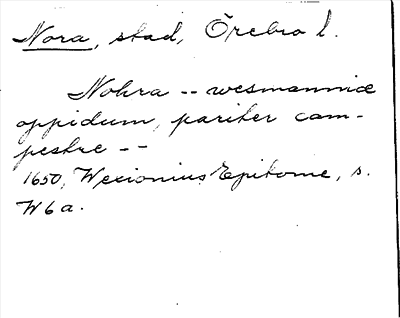 Nora, stad, Örebro l.
Nohra -- wesmanniæ
oppidum, pariter cam-
pestre --
1650, Wexionius, Epitome, s.
W6a.